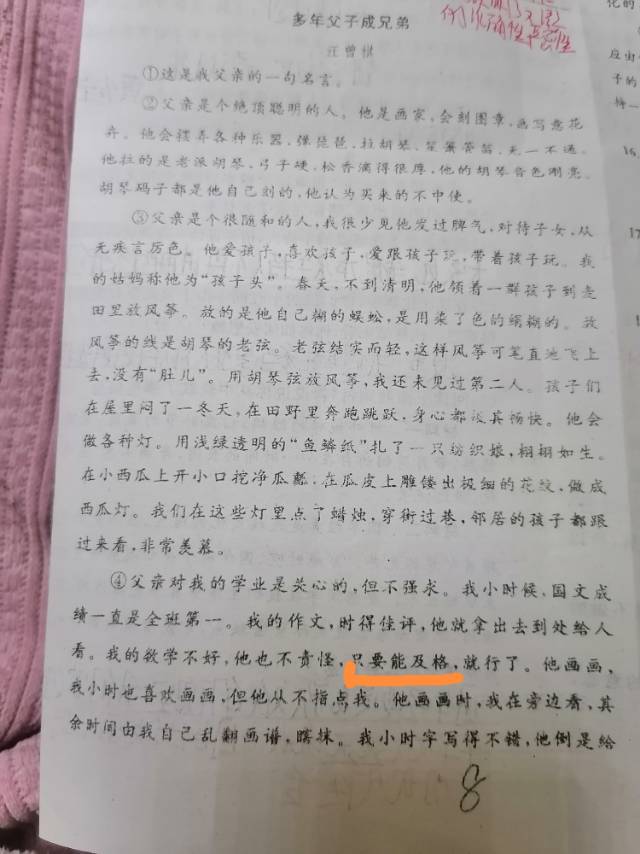 多年父子成兄弟
汪曾祺
①这是我父亲的一句名言。
②父亲是个绝顶聪明的人。他是画家,会刻图章,画写意花
卉。他会摆弄各种乐器,弹琵琶,拉胡琴,笙箫管笛,无一不通。
他拉的是老派胡琴,弓子硬,松香滴得很厚,他的胡琴音色刚亮。
胡琴码子都是他自己刻的,他认为买来的不中使。
③父亲是个很随和的人,我很少见他发过脾气,对待子女,从
无疾言厉色。他爱孩子,喜欢孩子,爱跟孩子玩,带着孩子玩。我
的姑妈称他为“孩子头”。春天,不到清明,他领着一群孩子到麦
田里放风筝。放的是他自己糊的蜈蚣,是用染了色的绢糊的。放
风筝的线是胡琴的老弦。老弦结实而轻,这样风筝可笔直地飞上
去,没有“肚儿”。用胡琴弦放风筝,我还未见过第二人。孩子们
在屋里闷了一冬天,在田野里奔跑跳跃,身心都极其畅快。他会
做各种灯。用浅绿透明的“鱼鳞纸”扎了一只纺织娘,栩栩如生。
在小西瓜上开小口挖净瓜瓤,在瓜皮上雕镂出极细的花纹,做成
西瓜灯。我们在这些灯里点了蜡烛,穿街过巷,邻居的孩子都跟
过来看,非常羡慕。
④父亲对我的学业是关心的,但不强求。我小时候,国文成
绩一直是全班第一。我的作文,时得佳评,他就拿出去到处给人
看。我的数学不好,他也不责怪,只要能及格,就行了。他画画,
我小时也喜欢画画,但他从不指点我。他画画时,我在旁边看,其
余时间由我自己乱翻画谱,瞎抹。我小时字写得不错,他倒是给
8
化的
应由
16
17